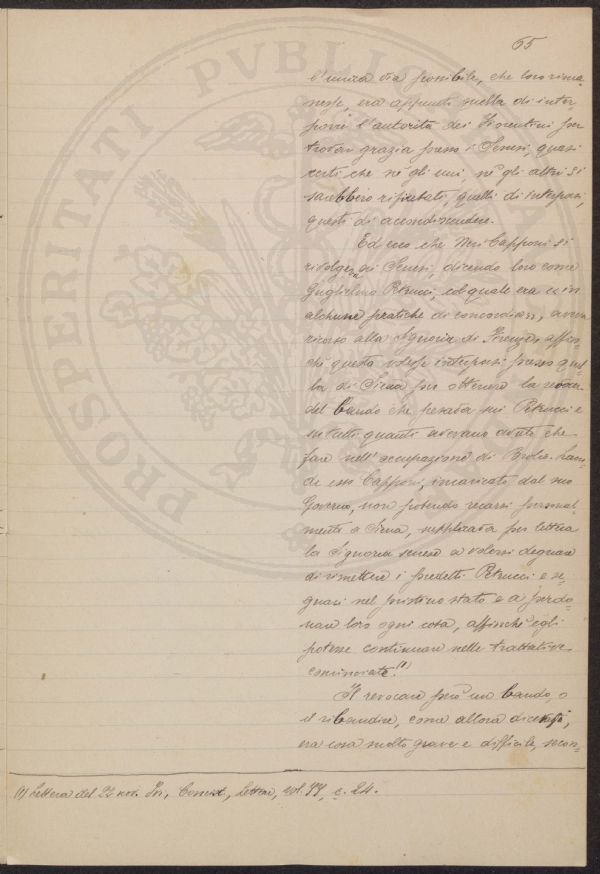 65
l'unica via possibile, che loro rima
nesse, era appunto quella di inter
porre l'autorità dei Fiorentini per
trovar grazia presso i Senesi, quasi
certi che nè gli uni, nè gli altri si
sarebbero rifiutati, quelli di interporsi,
questi di accondiscendere.
Ed ecco che Neri Capponi si
rivolgeva ai Senesi, dicendo loro come
Guglielmo Petrucci, col quale era in
alchune pratiche di concordia, aveva
ricorso alla Signoria di Firenze affin-
chè questa volesse interporsi presso quel
la di Siena per ottenere la revoca
del bando che pesava sui Petrucci e
su tutti quanti avevano avuto che
fare nell'occupazione di Brolio.
de esso Capponi, incaricato dal suo
Governo, non potendo recarsi personal
mente a Siena, supplicava per lettera
la Signoria senese a volersi degnare
di rimettere i predetti Petrucci e se
guaci nel pristino stato e a perdo
nare loro ogni cosa, affinchè egli
potesse continuare nelle trattative
cominciate.(1)
Il revocare però un bando, o
il ribandire, come allora dicevasi,
era cosa molto grave e difficile, secon-
(1) Lettera del 22 nov. Conc., Lettere, vol. 77, c. 24.
PROSPERITATI PVBLICAE